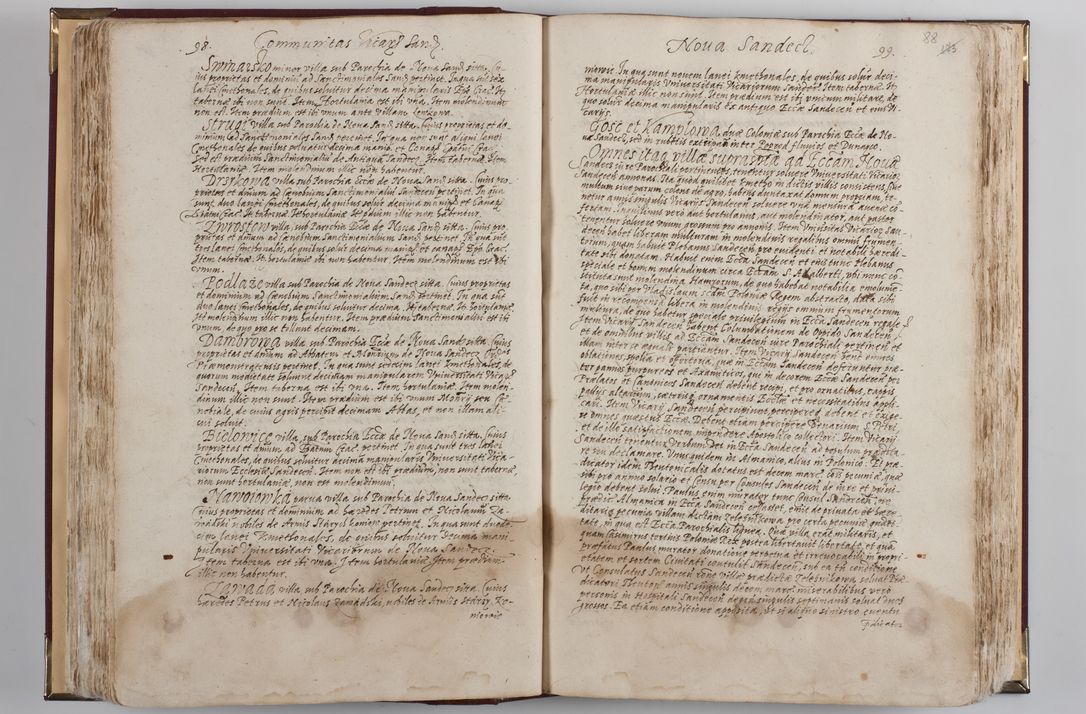 98. Communitas Vicarꝝ Sandꝫ.
minor villa sub Parochia de Noua Sandꝫ sitta, Cu-
ius proprietas et dominiũ ad Sanctimoniales Sandꝫ pertinet. In qua sut sex
lanei Cmethonales, de quibus soluitur decima manipularis Epõ Crac. Itẽ
taberna ibi non sunt. Item Hortulania est ibi vna. Item molendinum
non est. Item prædium est ibi vnum ante villam
Strugi villa sub Parochia de Noua Sandꝫ sitta. Cuius proprietas et do-
minium ad Sanctimoniales Sandꝫ pertinet. In qua non sunt aliqui lanei
Cmethonales de quibus soluatur decima manip. et Canap. Epatui Crac.
sed est prædium Sanctimonialiũ de Antiqua Sandecꝫ. Item tabernæ, Item
Hortulaniæ. Item molendinum illic non habentur.
villa sub Parochia Eccæ de Noua Sandꝫ sitta. Cuius pro-
prietas et dñium ad Cœnobium Sanctimonialiũ Sandecen pertinet. In qua
sunt duo lanei Cmethonales, de quibus soluit decima manipꝫ et Canapꝫ
Epatui Crac. It taberna It hortulaniæ It prædium illic non habentur.
villa, sub Parochia Eccæ de Noua Sandꝫ sitta. Cuius pro-
prietas et dñium ad Cænobium Sanctimonialium Sandꝫ pertinet. In qua sut
tres lanei Cmethonales, de quibus soluit decima manipꝫ et canapꝫ Epõ Crac.
Item tabernæ, It. hortulaniæ ibi non habentur. Item molendinum est ibi
vnum.
Podlaze villa sub Parochia de Noua Sandecꝫ sitta. Cuius proprietas
et dominium ad Cænobium Sanctimonialium Sandꝫ pertinet. In qua sut
duo lanei Cmethonales, de quibus soluitur decima. It tabernæ, It. hortulaniæ,
It molendinum illic non habentur. Item prædium Sanctimonialiũ est ibi
vnum, de quo pro se tollunt decimam.
Dambrowa villa sub Parochia Eccæ de Noua Sandꝫ sitta, Cuius
proprietas et dñium ad Abbatem et Monriũm de Noua Sandecꝫ Ordis
Præmonstratensis pertinet. In qua sunt septem lanei Kmethonales, de
quorum medietate soluunt decimam manipularem Vniuersitati Vicarꝝ
Sandecen. Item taberna est ibi vna. Item hortulaniæ. Item molen-
dinum illic non sunt. Item prædium est ibi vnum Monrÿ seu Cæ-
nobiale, de cuius agris percipit decimam Abbas, et non illam ali-
cui soluit.
Bielowice villa, sub Parochia Eccæ de Noua Sandꝫ sitta, Cuius
proprietas et dñium ad Epatum Crac. pertinet. In qua sunt tres lanei
Cmethonales, de quibus soluitur decima manipularis Vniuersitati Vica-
riorum Ecclesiæ Sandecen. Item non est ibi prædium, non sunt tabernæ
non sunt hortulaniæ, non est molendinum.
Nawoiowka parua villa sub Parochia de Noua Sandecꝫ sitta
Cuius proprietas et dominium ad hæredes Petrum et Nicolaum Za-
nobiles de Armis pertinet. In qua sunt duode-
cim lanei Kmethonales, de quibus soluitur decima mani-
pularis Vniuersitati Vicariorum de Noua Sandecꝫ.
Item taberna est ibi vna. Item hortulaniæ, Item prædium
illic non habentur.
Zawada villa, sub Parochia de Noua Sandecꝫ sitta. Cuius
hæredes Petrus et Nicolaus nobiles de Armis Starsy Ko-
nierie
Noua Sandecz. 99.
88
In qua sunt nouem lanei Kmethonales, de quibus soluit deci-
ma manipularis Vniuersitati Vicariorum Sandecꝫ. Item tabernæ. It
Hortulaniæ illic non sunt. Item prædium est ibi vnicum militare, de
quo soluit decima manipularis ex antiquo Eccæ Sandecen et eius Vi-
carijs.
Gosc et Kamplowa duæ Coloniæ sub Parochia Eccæ de No-
ua Sandecꝫ, sed in rubetis extirpatis inter Poprod fluuios et Dunaÿcꝫ.
Omnes itaq villæ suprascriptæ ad Eccam Noua
Sandecꝫ iure Parochiali pertinentes, tenentur soluere Vniuersitati Vicarioꝝ
Sandecen annonas. Ita quod quilibet Kmetho in dictis villis consistens siue
multum siue parum colens de agro, habens duntaxat domum propriam, te-
netur annis singulis Vicarijs Sandecen soluere vnã mensurã auenæ
Inquilinus verò aut hortulanus, aut molendinator, aut pastor
tenentur soluere vnum grossum pro annona. Item Vniuersitas Vicariorꝝ San-
decen habet liberam multuram in molendinis regalibus omnis frumen-
torum, quam habuit Plebanus Sandecen pro euidenti et notabili hæredi-
tate sibi donatam. Habuit enim Ecca Sandecen et eius tunc Plebanus
speciale et bonum molendinum circa Ecclam S. Adalberti, vbi nunc co-
structa sunt molendina de quo habebat notabilia emolume-
ta, quo sibi per Vladislaum scdm Poloniæ Regem abstracto, data sibi
fuit in recompensã libera in molendinis regijs omnium frumentorum
mensura, de quo habetur speciale priuilegium in Ecca Sandecen regale
Item Vicarij Sandecen habent Columbationem de Oppido Sandecen
et de omnibus villis ad Ecclam Sandecen iure Parochiali pertinen et
illam inter se equali partiuntur. Item Vicarij Sandecen vere omnes
oblationes, spolia et offertoria, quæ in Ecclam Sandecen deferuntur præ-
ter pannos purpureos et Axamiticos, qui in decorem Eccæ Sandecen per
Prælatos et Canonicos Sandecen debent recipi, et pro ornatibus, cappis
pallijs altarium, cæterisq ornamentis Eccliæ et necessitatibus appli-
cari. Item Vicarij Sandecen percipiunt, percipere debent et exige-
re omnes quæstus Eccæ. Debent etiam percipere Denarium S. Petri,
et de illo satisfactionem impendere Apostolico collectori. Item Vicarij
Sandecen tenentur Verbum Dei in Ecca Sandecen ad populum prædica-
re seu declamare. Vnus quidem in Almanico, alius in Polonico. Et præ-
dicator idem Theutonicalis dotatus est decem marc. quas
sibi pro annuo salario et Censu per Consules Sandecen de iure et priui-
legio debent solui. Paulus enim murator tunc Consul Sandecen,
prædic. Almanica in Ecca Sandecen cessasset, emit de priuata et hære-
ditaria pecunia villam dictam Zeleznikowa pro certa pecuniæ quati-
tate, in qua est Ecca Parochialis lignea. Quæ villa erat militaris, et
quam Casimirus tertius Poloniæ Rex postea libertauit libertate, et quã
prefatus Paulus murator donatione perpetua et irreuocabili in propri-
etatem et sortem Ciuitati contulit Sandecen, sub ea tñ conditione
Vt Consulatus Sandecen rône villæ prædictæ Zeleznikowa soluat Præ-
dicatori Theuton. annis singulis decem marc. miserabilibus verò
personis in Hospitali Sandecen degen singulis septimanis soluat duos
grossos. Ea etiam conditione apposita, Vt si aliquo sinistro euentu
pdicat-